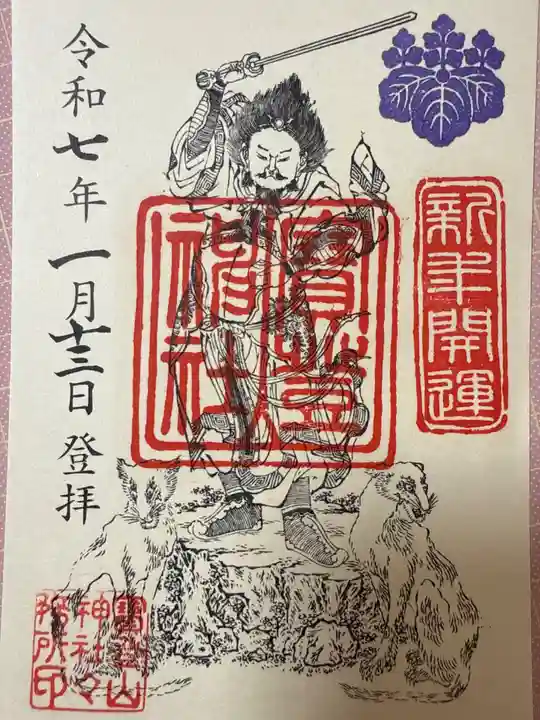 新年開運
寳登
神社
令和七年一月十三日 登拝
寳登山
神社々
務所印